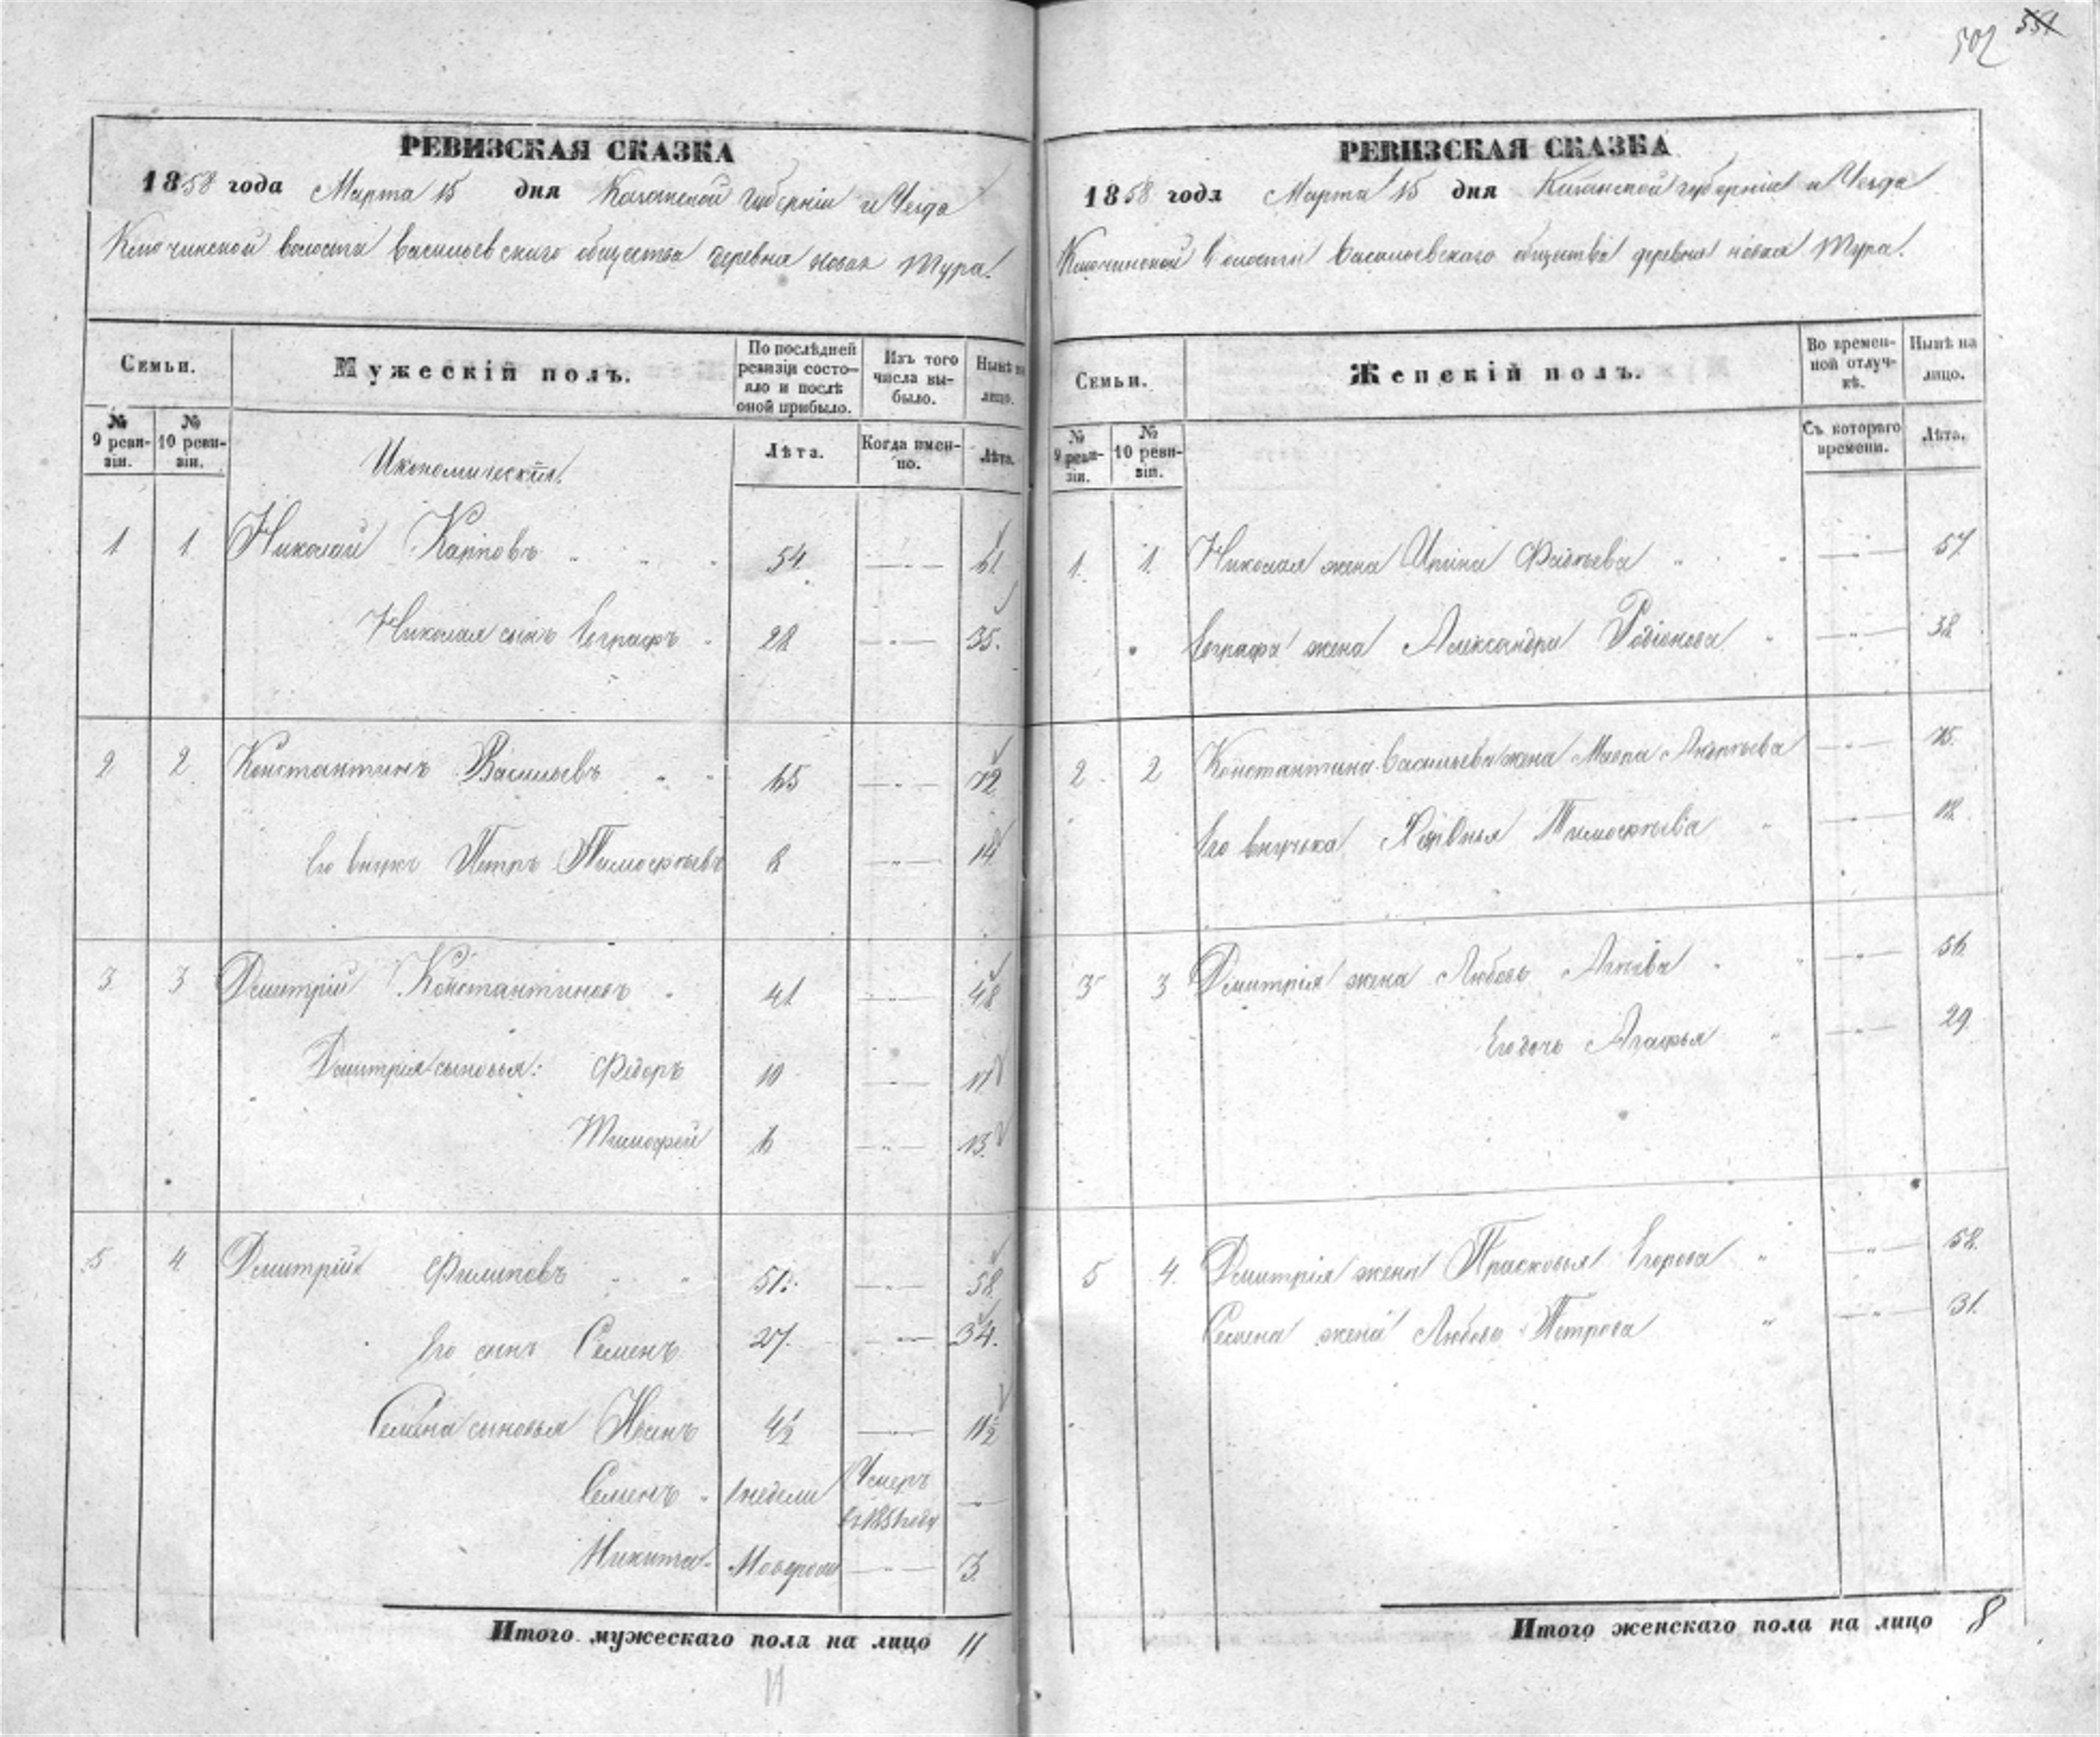 502 551
РЕВИЗСКАЯ СКАЗКА
1858 года Марта 15 дня Казанской губерніи и Уезда
Ключинской волости Васильевскаго общества деревня новая Тура.
Семьи.
Мужескій полъ.
По послѣдней ревизіи состояло и послѣ оной прибыло.
Изъ того числа выбыло.
Нынѣ на лицо.
№ 9 ревизіи.
№ 10 ревизіи.
Икономическия.
Лѣта.
Когда именно.
Лѣта.
1 1 Николай Карповъ 54 61
Николая сынъ Евграфъ 28 35.
2 2 Константинъ Васильевъ 65 72
Его внукъ Петръ Тимофѣевъ 8
3 3 Дмитрій Константиновъ 41 48
Дмитрія сыновья: Федоръ 10 17
Тимофей 6 13.
5 4 Дмитрій Филиповъ 51. 58.
Его сынъ Семенъ 27. 34.
Семена сыновья Иванъ 4½ 11½
Семенъ 1 недели Умеръ въ 1851 году
Никита 3.
Итого мужескаго пола на лицо 11
11
РЕВИЗСКАЯ СКАЗКА
1858 года Марта 15 дня Казанской губерніи и Уезда
Ключинской волости Васильевскаго общества деревня новая Тура.
Семьи.
Женскій полъ.
Во временной отлучкѣ.
Нынѣ на лицо.
№ 9 ревизіи.
№ 10 ревизіи.
Съ котораго времени.
Лѣта.
1. 1. Николая жена Ирина 57
Евграфа жена Александра Родіонова 38.
2. 2 Константина Васильева жена Мавра Андрѣева 75.
Его внучька Тимофѣева 18.
3 3 Дмитрія жена Любовь 56.
Его дочь Агафья 29
5 4. Дмитрія жена Прасковья Егорова 58.
Семена жена Любовь Петрова 31.
Итого женскаго пола на лицо 8